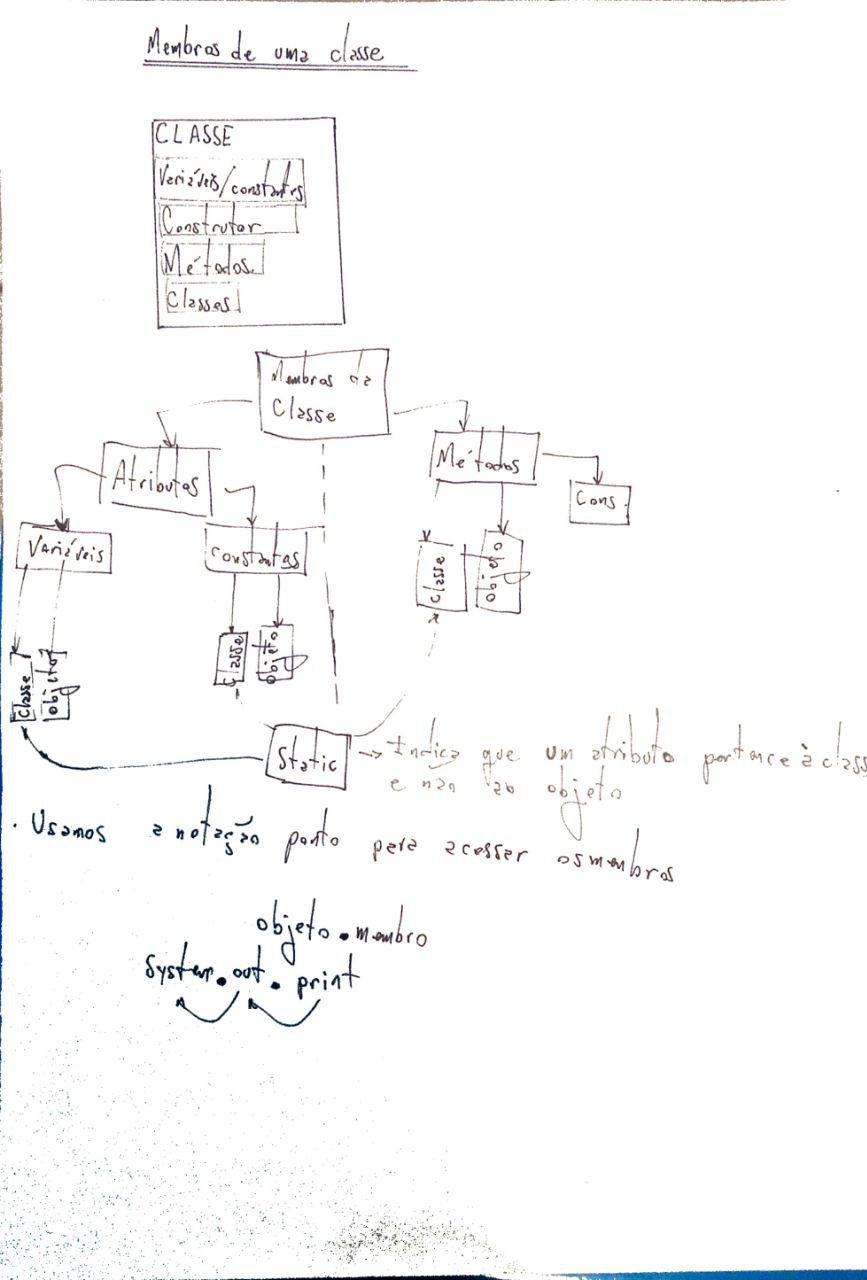 Membros de uma classe
CLASSE
Variáveis/constantes
Construtor
Métodos
Classes
Membros da
Classe
Atributos
Métodos
Cons.
Variáveis
Constantes
Classe
Objeto
Classe
Objeto
Classe
Objeto
Static → Indica que um atributo pertence à class
e não ao objeto
. Usamos a notação ponto para acessar os membros
objeto.membro
System.out.print